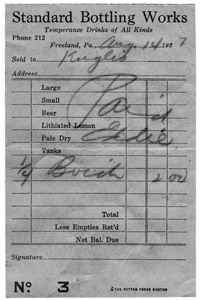 Standard Bottling Works
Temperance Drinks of All Kinds
Phone 212
Freeland, Pa. Aug. 14 1937
Sold to
Address
Large
Small
Beer
Lithiated Lemon
Pale Dry Eddie
Tanks
Paid
1/4 2.00
Total
Less Empties Ret'd
Net Bal. Due
Signature
No. 3
THE PUTTEN PRESS BOSTON